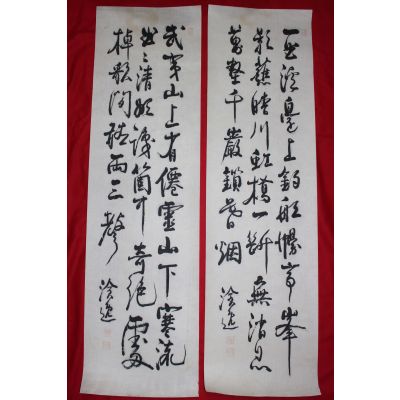 武夷山上有僊靈山下寒流
曲曲清欲識箇中奇絕處
棹歌閒聽兩三聲
一曲溪邊上釣船幔亭峯
影蘸晴川虹橋一斷無消息
萬壑千巖鎖暮烟